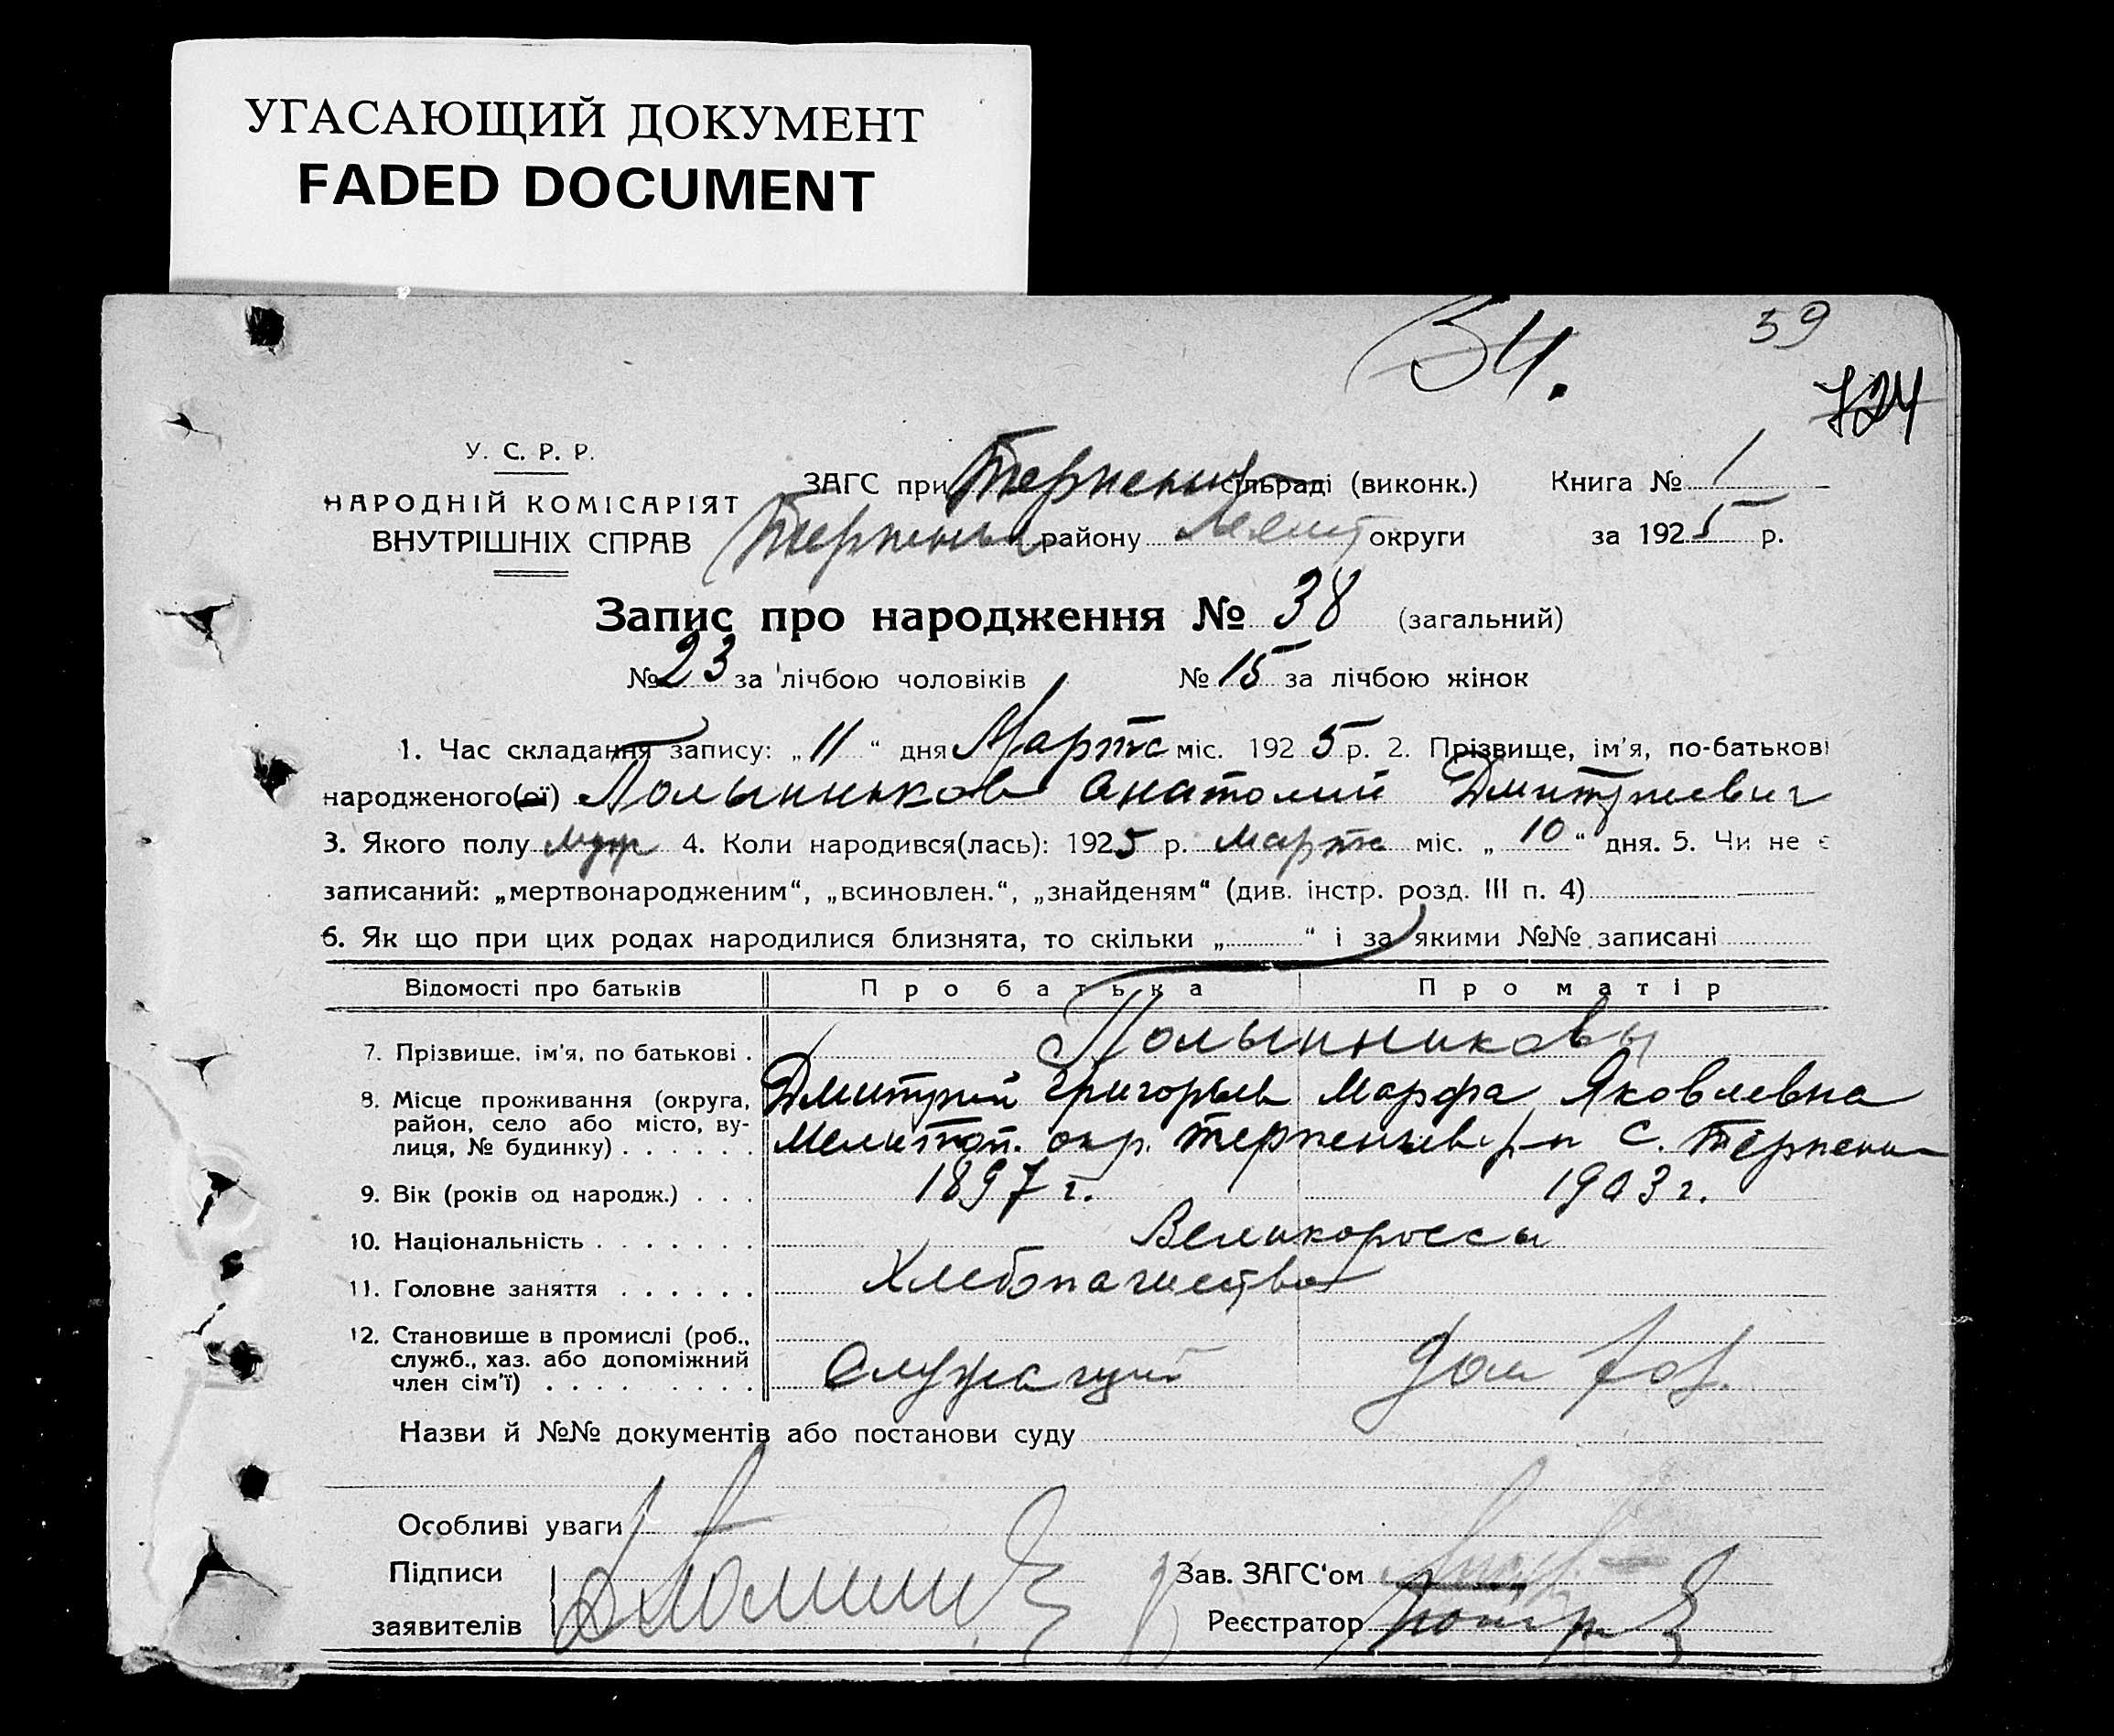 УГАСАЮЩИЙ ДОКУМЕНТ
FADED DOCUMENT
54.
59
724
У. С. Р. Р.
НАРОДНІЙ КОМІСАРІЯТ
ВНУТРІШНІХ СПРАВ
ЗАГС при Терпеньів сільраді (виконк.) Книга № 1
Терпеньів району Мелит округи за 1925 р.
Запис про народження № 38 (загальний)
№ 23 за лічбою чоловіків № 15 за лічбою жінок
1. Час складання запису: „ 11 “ дня Марта міс. 1925 р. 2. Прізвище, ім'я, по-батькові
народженого(ої) Полынников Анатолий Дмитриевич
3. Якого полу муж 4. Коли народився(лась): 1925 р. Марта міс. „ 10 “ дня. 5. Чи не є
записаний: „мертвонародженим“, „всиновлен.“, „знайденям“ (див. інстр. розд. III п. 4)
6. Як що при цих родах народилися близнята, то скільки „ “ і за якими №№ записані
Відомості про батьків Про батька Про матір
7. Прізвище, ім'я, по батькові . Полынниковы
8. Місце проживання (округа, Дмитрий Григорьев Марфа Яковлевна
район, село або місто, ву-
лиця, № будинку) . . . . . . Мелитоп. окр. Терпеньев р-н с. Терпенье
9. Вік (років од народж.) . . . 1897 г. 1903 г.
10. Національність . . . . . . . Великороссы
11. Головне заняття . . . . . . Хлебопашество
12. Становище в промислі (роб.,
служб., хаз. або допоміжний
член сім'ї) . . . . . . . . . Служащий Дом хоз.
Назви й №№ документів або постанови суду
Особливі уваги
Підписи
заявителів
Зав. ЗАГС'ом
Реєстратор